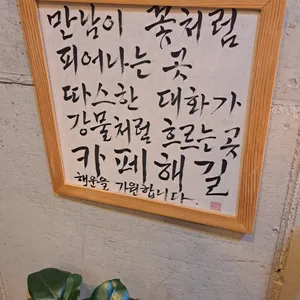 만남이 꽃처럼
피어나는 곳
따스한 대화가
강물처럼 흐르는곳
카페해길
행운을 기원합니다.